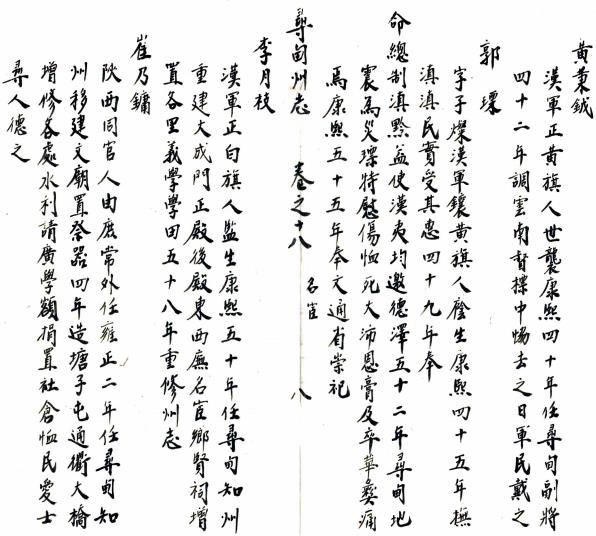 黃秉鉞
漢軍正黃旗人世襲康熙四十年任尋甸副將
四十二年調雲南督摽中協去之日軍民戴之
郭瑮
字子燦漢軍鑲黃旗人廕生康熙四十五年撫
滇滇民實受其惠四十九年奉
命總制滇黔益使漢夷均邀德澤五十二年尋甸地
震為災瑮特慰傷恤死大沛恩膏及卒華彜痛
焉康熙五十五年奉文通省崇祀
尋甸州志 卷之十八 名宦 八
李月枝
漢軍正白旗人監生康熙五十年任尋甸知州
重建大成門正殿後殿東西廡名宦鄉賢祠增
置各里義學學田五十八年重修州志
崔乃鏞
陝西同官人由庶常外任雍正二年任尋甸知
州移建文廟置祭器四年造塘子屯通衢大橋
增修各處水利請廣學額捐置社倉恤民愛士
尋人德之